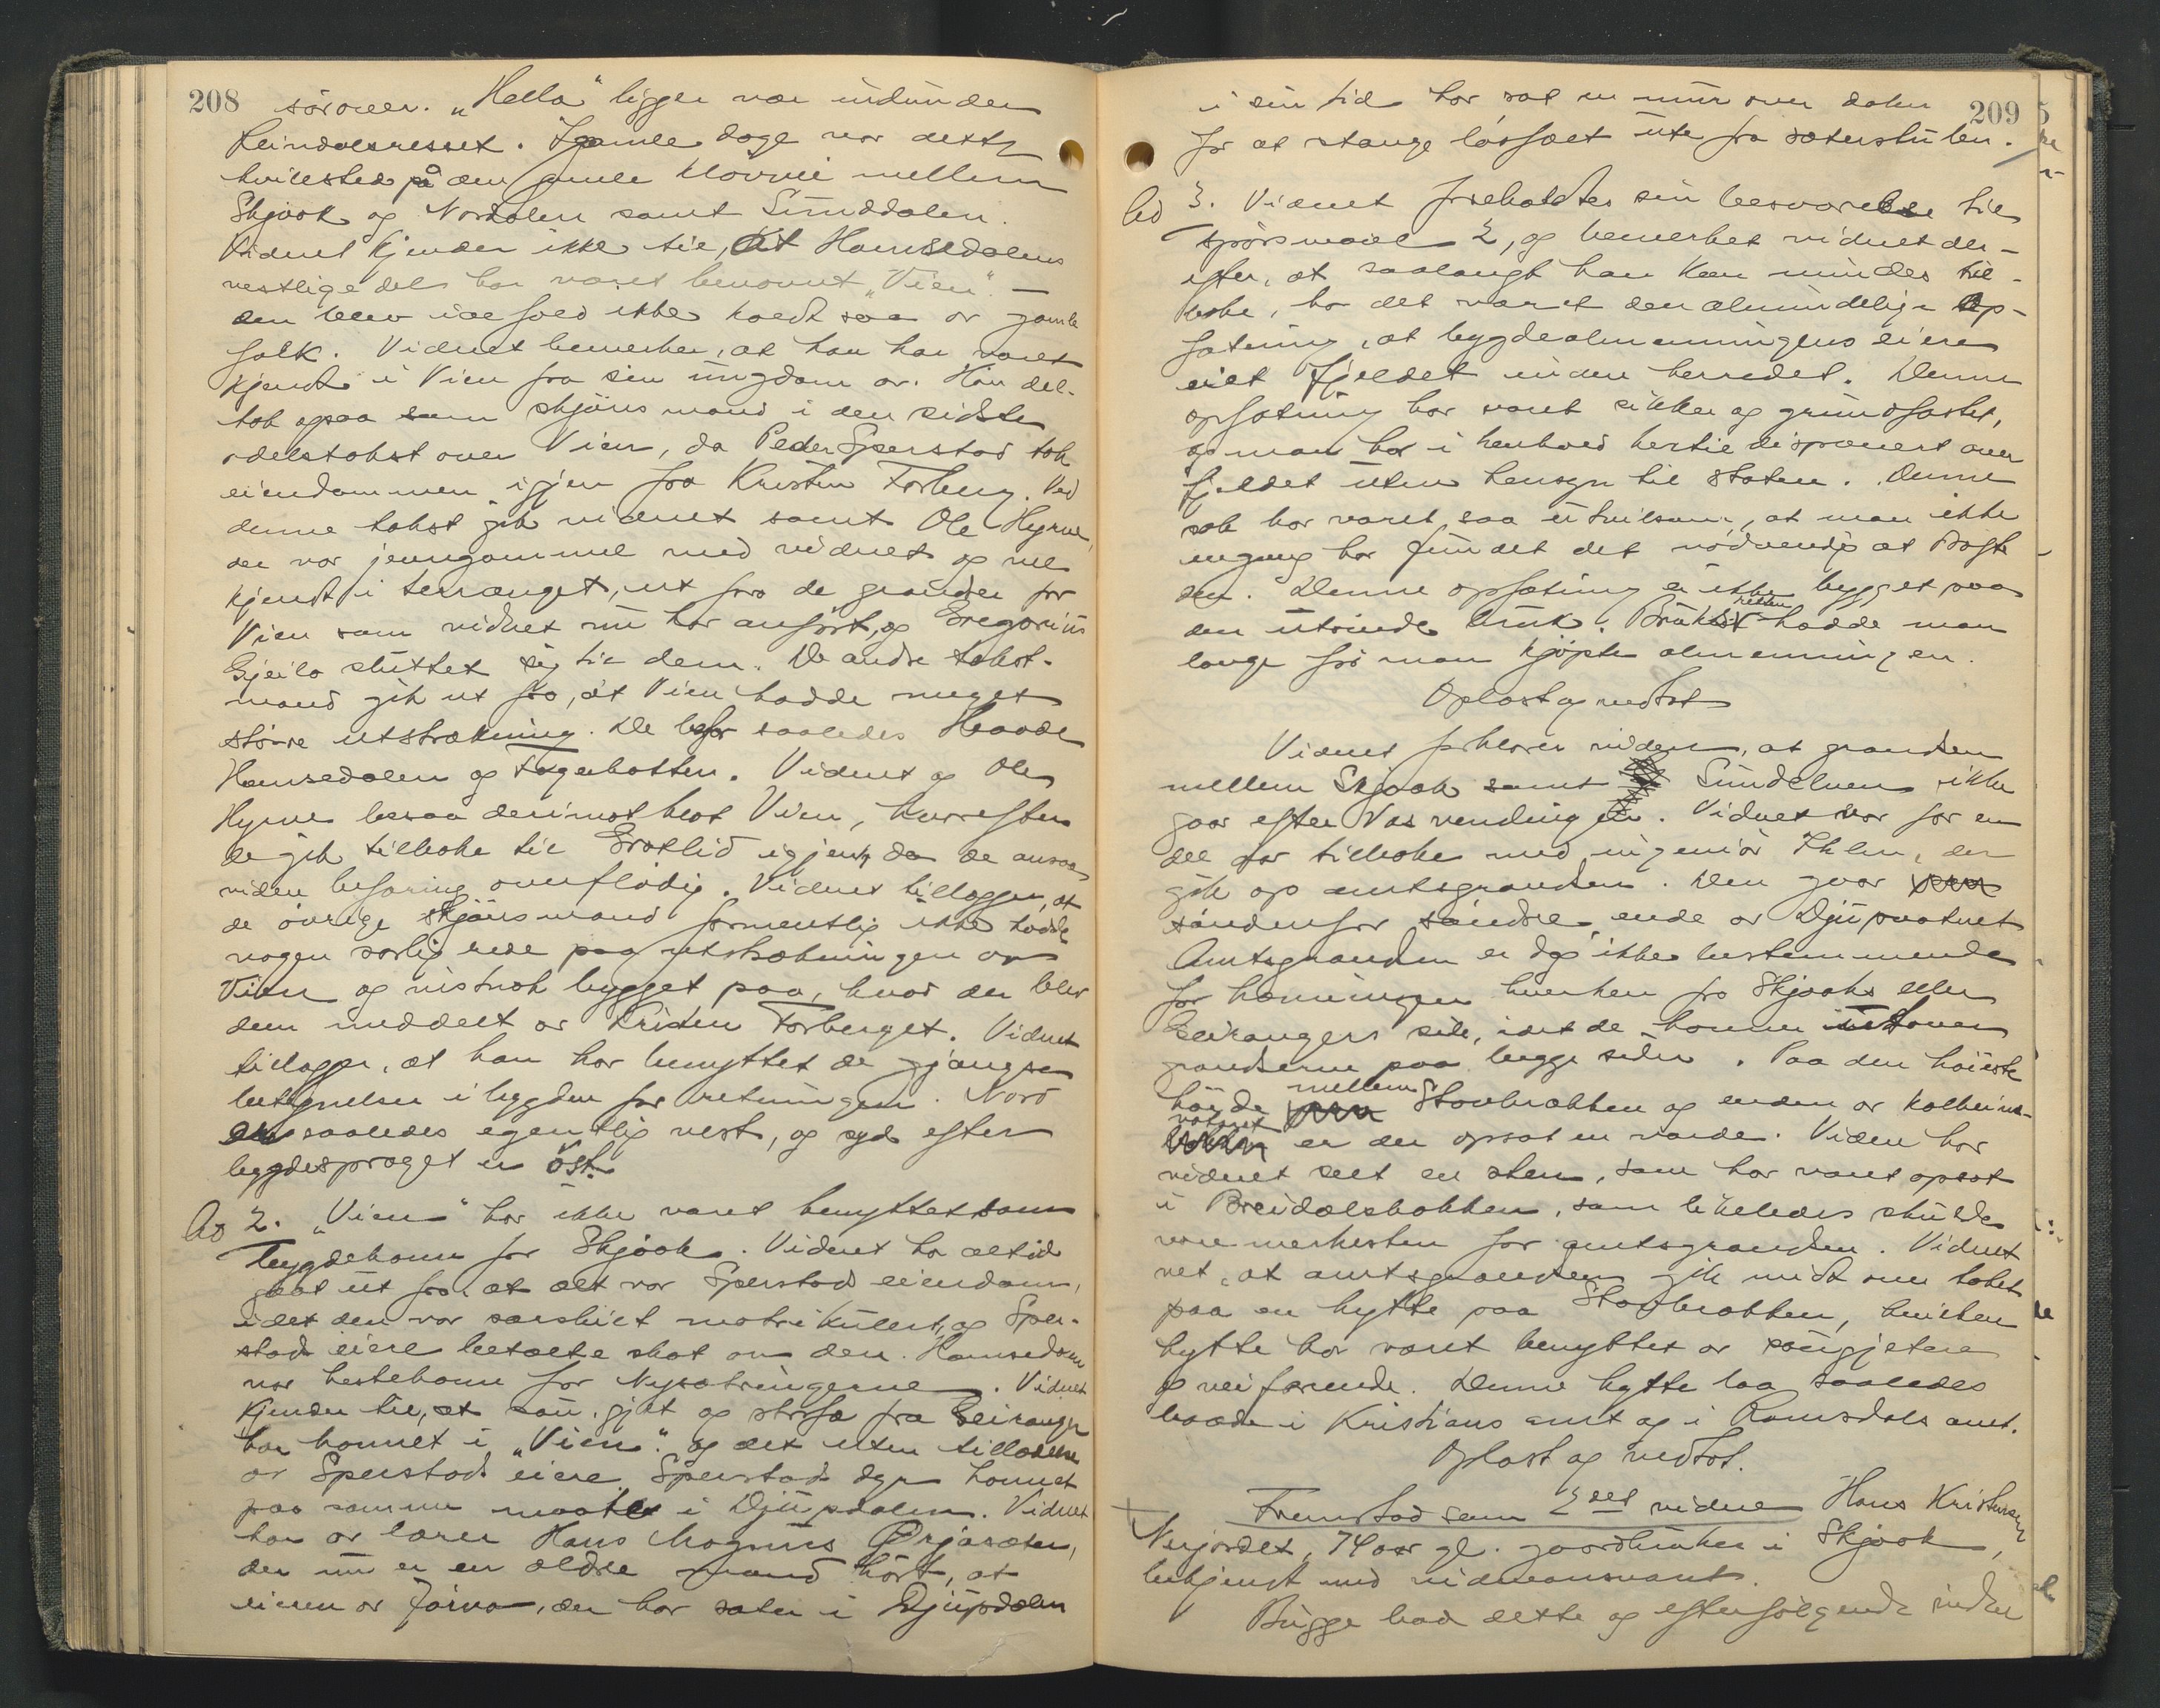 208
sörover. "Hella" ligger nær indunder
Leindalsresset. I gamle dage var dette
hvilested på den gamle kløvvei mellem
Skjaak og Nordalen samt Sunddalen.
Vidnet kjender ikke til, at Hamsedalens
vestlige del har været benævnt "Vien". —
den blev ialfald ikke kaldt saa av gamle
folk. Vidnet bemerker, at han har været
kjendt i Vien fra sin ungdom av. Han del-
tok ogsaa som skjönsmand i den sidste
odelstakst over Vien, da Peder Sperstad tok
eiendommen igjen fra Kristen Forberg. Ved
denne takst gik vidnet samt Ole Hyrve,
der var jevngammel med vidnet og vel
kjendt i terrænget, ut fra de grænser for
Vien som vidnet nu har anfört, og Gregorius
Gjeilo sluttet sig til dem. De andre takst-
mænd gik ut fra, at Vien hadde meget
större utstrækning. De befor saaledes Haade
Hamsedalen og Fagerbotten. Vidnet og Ole
Hyrve besaa derimot blot Vien, hvorefter
de gik tilbake til Grotlid igjen, da de ansaa
viden befaring overflödig. Vidnet tillægger, at
de övrige skjönsmænd formentlig ikke hadde
nogen særlig rede paa utstrækningen av
Vien og vistnok bygget paa, hvad der blev
dem meddelt av Kristen Forberget. Vidnet
tillægger, at han har benyttet de gjængse
betegnelser i bygden for retningen. Nord
er saaledes egentlig vest, og syd efter
bygdesproget er öst.
Ad 2. "Vien" har ikke været benyttet som
bygdehavn for Skjaak. Vidnet har altid
gaat ut fra, at alt var Sperstads eiendom,
idet den var særskilt matrikulert, og Sper-
stads eiere betalte skat av den. Hamsedalen
var hestehavn for Nysætringerne. Vidnet
kjender til, at sau, gjet og storfæ fra Geiranger
har havnet i "Vien" og det uten tilladelse
av Sperstads eiere. Sperstads dyr havnet
paa samme maate i Djupdalen. Vidnet
har av lærer Hans Magnus Örjasæter,
der nu er en ældre mand hört, at
eieren av Jaiva, der har sæter i Djupdalen
209
i sin tid har sat en mur over dalen
for at stænge lösfæet ute fra sæterstulen.
Ad 3. Vidnet foreholdtes sin besvarelse til
spörsmaal 2, og bemerket vidnet der-
efter, at saalangt han kan mindes til-
bake, har det været den almindelige op-
fatning, at bygdealmenningens eiere
eiet fjeldet inden herredet. Denne
opfatning har været sikker og grundfæstet,
og man har i henhold hertil disponert over
fjeldet uten hensyn til staten. Denne
sak har været saa utvilsom, at man ikke
engang har fundet det nödvendig at dröfte
den. Denne opfatning er ikke bygget paa
den utövede bruk. Bruksretten hadde man
længe för man kjöpte almenningen.
Oplæst og vedtat
Vidnet forklarer videre, at grænsen
mellem Skjaak samt Sundelven ikke
gaar efter Vasvendingen. Vidnet var for en
del aar tilbake med ingeniör Ihlen, der
gik op amtsgrænsen. Den gaar
söndenfor söndre ende av Djupvatnet
Amtsgrænsen er dog ikke bestemmende
for havningen hverken fra Skjaaks eller
Geirangers side, idet de havner utover
grænserne paa begge sider. Paa den höieste
höide mellem Stavbrækken og enden av Kolbeins-
vatnet er der opsat en varde. Viden har
vidnet seet en sten, som har været opsat
i Breidalsbakken, som likeledes skulde
være merkesten for amtsgrænsen. Vidnet
vet, at amtsgrænsen gik midt over taket
paa en hytte paa Stavbrækken, hvilken
hytte har været benyttet av saugjetere
og veifarende. Denne hytte laa saaledes
baade i Kristians amt og i Romsdals amt.
Oplæst og vedtat.
Fremstod som 2det vidne Hans Kristensen
Nerjordet, 74 aar gl. gaardbruker i Skjaak,
bekjendt med vidneansvaret.
Bugge bad dette og efterfölgende vidner